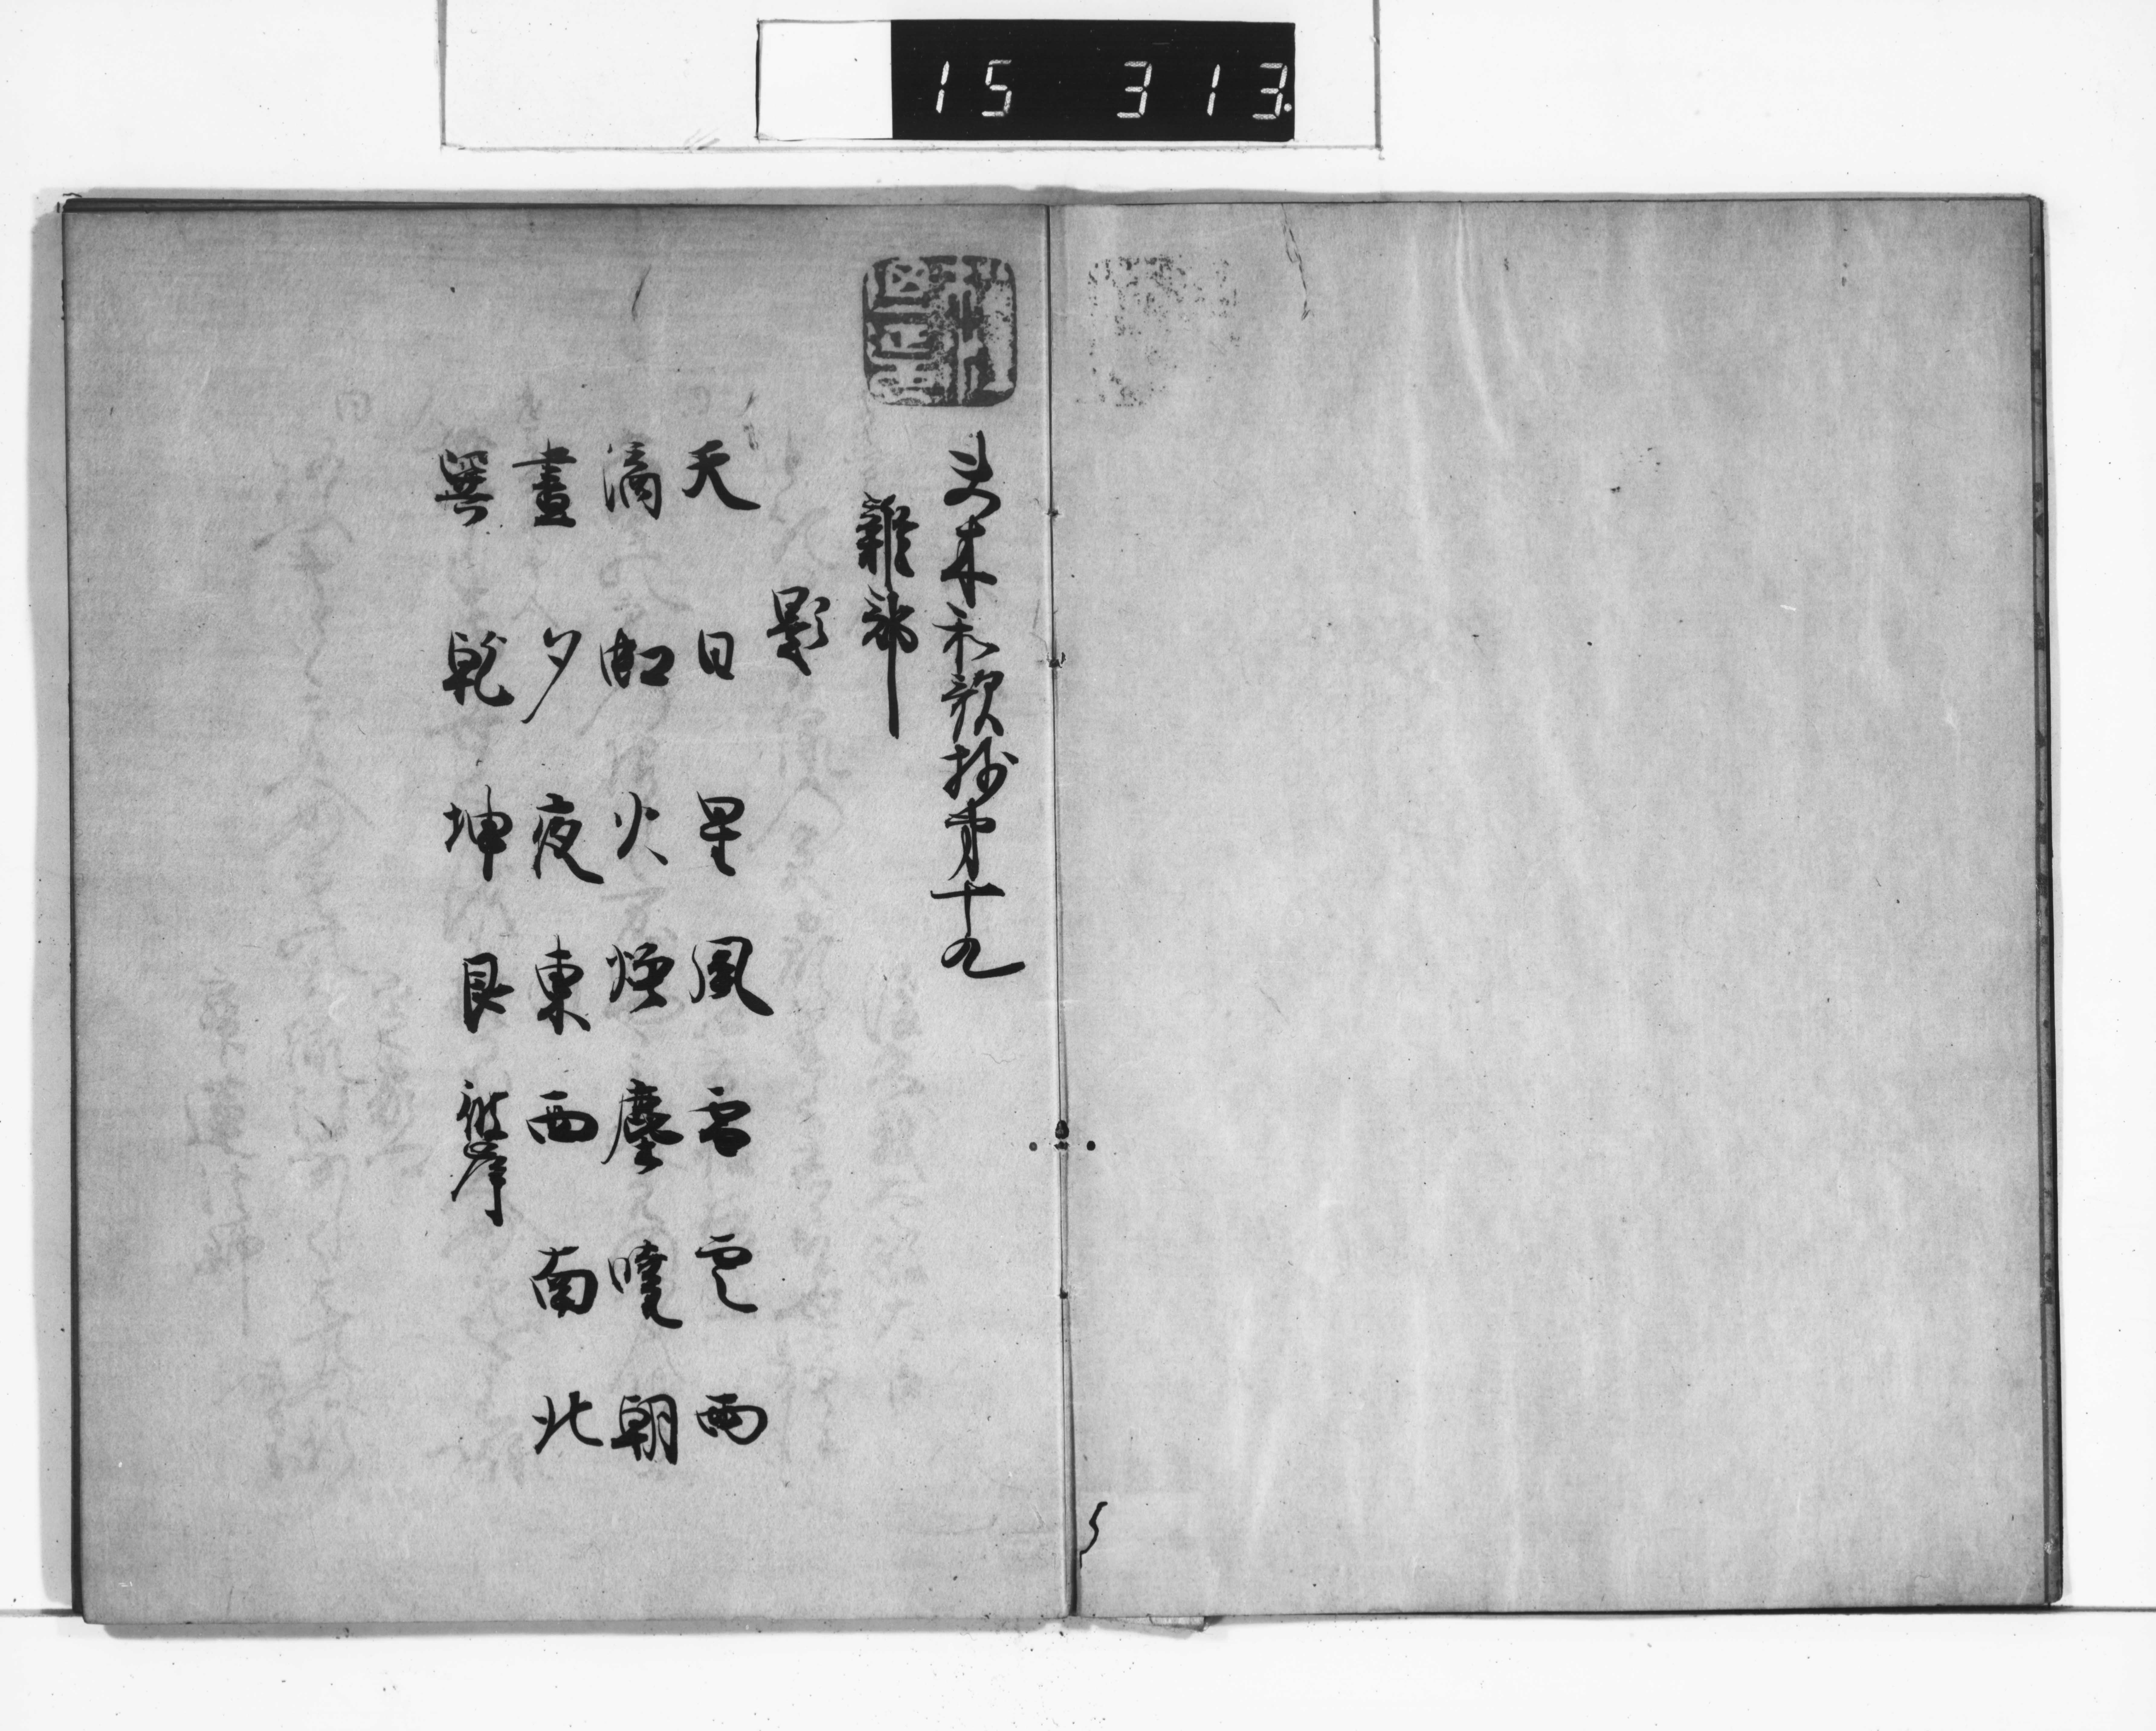 15 313
夫木和歌抄第十九
雜部
影
天 日 星 風 雲 雨
滴 虹 火 煙 塵 曉 朝
晝 夕 夜 東 西 南 北
巽 乾 坤 艮